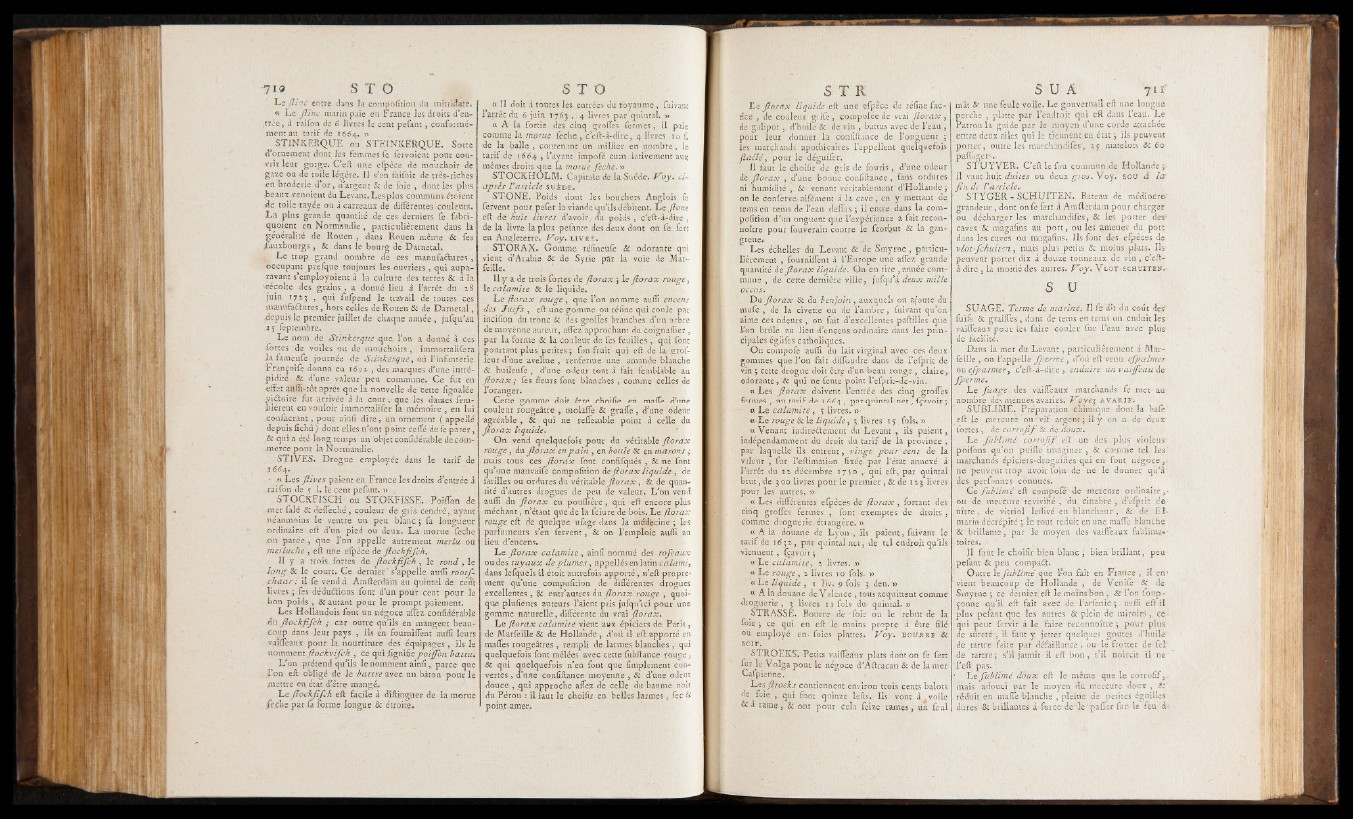 710 STO
Le ſtinc entre dans la compoſition du mitridate.
« Le ſtinc marin paie en France les droits d'entrée, à raiſon de 6 livres le cent peſant, conformément au tarif de 1664. »
STINKERQUE ou STEINKERQUE. Sorte
d'ornement dont les femmes ſe ſervoient pour couvrir leur gorge. C'eſt une eſpèce de mouchoir de
gaze ou de toile légère. Il s'en faiſoit de très-riches
en broderie d'or, d'argent & de ſoie, dont les plus
beaux venoient du Levant. Les plus communs étoient
de toile rayée ou à carreaux de différentes couleurs.
La plus grande quantité de ces derniers ſe fabriquoient en Normandie, particulièrement dans la
généralité de Rouen, dans Rouen même & ſes
fauxbourgs, & dans le bourg de Darnetal.
Le trop grand nombre de ces manufactures,
occupant preſque toujours les ouvriers, qui auparavant s'employoient à la culture des terres & à la
récolte des grains, a donné lieu à l'arrêt du 28
juin 1723, qui ſuſpend le travail de toutes ces
manufactures, hors celles de Rouen & de Darnetal,
depuis le premier juillet de chaque année, juſqu'au
15 ſeptembre.
Le nom de Stinkerque que l'on a donné à ces
ſortes de voiles ou de mouchoirs, immortaliſera
la fameuſe journée de Steinkerque, où l'infanterie
Françoiſe donna en 1692, des marques d'une intrépidité & d'une valeur peu commune. Ce fut en
effet auſſi-tôt après que la nouvelle de cette ſignalée
victoire fut arrivée à la cour, que les dames ſemblèrent en vouloir immortaliſer la mémoire, en lui
conſacrant, pour ainſi dire, un ornement (appellé
depuis fichû) dont elles n'ont point ceſſé de ſe parer,
& qui a été long temps un objet conſidérable de commerce pour la Normandie.
STIVES. Drogue employée dans le tarif de
1664.
« Les ſtives paient en France les droits d'entrée à
raiſon de 5 l. le cent peſant. »
STOCKFISCH ou STOKFISSE. Poiſſon de
mer ſalé & deſſéché, couleur de gris cendré, ayant
néanmoins le ventre un peu blanc; ſa longueur
ordinaire eſt d'un pied ou deux. La morue ſéche
ou parée, que l'on appelle autrement merlu ou
merluche, eſt une eſpèce de ſtockfiſch.
Il y a trois ſortes de ſtockfiſch, le rond, le
long & le court. Ce dernier s'appelle auſſi rootſchaar: il ſe vend à Amſterdam au quintal de cent
livres; ſes déductions ſont d'un pour cent pour le
bon poids, & autant pour le prompt paiement.
Les Hollandois font un négoce aſſez conſidérable
du ſtockfiſch; car outre qu'ils en mangent beaucoup dans leur pays, ils en fourniſſent auſſi leurs
vaiſſeaux pour la nourriture des équipages, ils le
nomment ſtockviſch, ce qui ſignifie poiſſon battu.
L'on prétend qu'ils le nomment ainſi, parce que
l'on eſt obligé de le battre avec un bâton pour le
mettre en état d'être mangé.
Le ſtockfiſch eſt facile à diſtinguer de la morue
ſéche par ſa forme longue & étroite.
STO
« Il doit à toutes les entrées du royaume, ſuivant
l'arrêt du 6 juin 1763, 4 livres par quintal. »
« A la ſortie des cinq groſſes fermes, il paie
comme la morue ſéche, c'eſt-à-dire, 4 livres 10 ſ.
de la balle, contenant un millier en nombre, le
tarif de 1664, l'ayant impoſé cumulativement aux
mêmes droits que la morue ſéche. »
STOCKHOLM. Capitale de la Suède. Voy. ci-après l'article SUÈDE.
STONE. Poids dont les bouchers Anglois ſe
ſervent pour peſer la viande qu'ils débitent. Le ſtone
eſt de huit livres d'avoir du poids, c'eſt-à-dire,
de la livre la plus peſante des deux dont on ſe ſert
en Angleterre. Voy. LIVRE.
STORAX. Gomme réſineuſe & odorante qui
vient d'Arabie & de Syrie par la voie de Marſeille.
Il y a de trois ſortes de ſtorax; le ſtorax rouge,
le calamite & le liquide.
Le ſtorax rouge, que l'on nomme auſſi encens
des Juifs, eſt une gomme ou réſine qui coule par
inciſion du tronc & des groſſes branches d'un arbre
de moyenne auteur, aſſez approchant du coignaſſier,
par la forme & la couleur de ſes feuilles, qui ſont
pourtant plus petites; ſon fruit qui eſt de la groſſeur d'une aveline, renferme une amande blanche
& huileuſe, d'une odeur tout à fait ſemblable au
ſtorax; ſes fleurs ſont blanches, comme celles de
l'oranger.
Cette gomme doit être choiſie en maſſe d'une
couleur rougeâtre, molaſſe & graſſe, d'une odeur
agréable, & qui ne reſſemble point à celle du
ſtorax liquide.
On vend quelquefois pour du véritable ſtorax
rouge, du ſtorax en pain, en boule & en marons;
mais tous ces ſtorax ſont confiſqués, & ne ſont
qu'une mauvaiſe compoſition de ſtorax liquide, de
farilles ou ordures du véritable ſtorax, & de quantité d'autres drogues de peu de valeur. L'on vend
auſſi du ſtorax en pouſſière, qui eſt encore plus
méchant, n'étant que de la ſciure de bois. Le ſtorax
rouge eſt de quelque uſage dans la médecine; les
parfumeurs s'en ſervent, & on l'emploie auſſi au
lieu d'encens.
Le ſtorax calamite, ainſi nommé des roſeaux
ou des tuyaux de plumes, appellés en latin calami,
dans leſquels il étoit autrefois apporté, n'eſt proprement qu'une compoſition de différentes drogues
excellentes, & entr'autres du ſtorax rouge, quoique pluſieurs auteurs l'aient pris juſqu'ici pour une
gomme naturelle, différente du vrai ſtorax.
Le ſtorax calamite vient aux épiciers de Paris,
de Marſeille & de Hollande, d'où il eſt apporté en
maſſes rougeâtres, rempli de larmes blanches, qui
quelquefois ſont mêlées avec cette ſubſtance rouge,
& qui quelquefois n'en ſont que ſimplement couvertes, d'une conſiſtance moyenne, & d'une odeur
douce, qui approche aſſez de celle du baume noir
du Pérou: il faut le choiſir en belles larmes, ſec &
point amer.
STR
Le ſtorax liquide eſt une eſpèce de réſine factice, de couleur griſe, compoſée de vrai ſtorax,
de galipot, d'huile & de vin, battus avec de l'eau,
pour leur donner la conſiſtance de l'onguent;
les marchands apothicaires l'appellent quelquefois
ſtacté, pour le déguiſer.
Il faut le choiſir de gris de ſouris, d'une odeur
de ſtorax, d'une bonne conſiſtance, ſans ordures
ni humidité, & venant véritablement d'Hollande;
on le conſerve aiſément à la cave, en y mettant de
tems en tems de l'eau deſſus; il entre dans la compoſition d'un onguent que l'expérience a fait reconnoître pour ſouverain contre le ſcorbut & la gangrene.
Les échelles du Levant & de Smyrne, particulièrement, fourniſſent à l'Europe une aſſez grande
quantité de ſtorax liquide. On en tire, année commune, de cette dernière ville, juſqu'à deux mille
occos.
Du ſtorax & du benjoin, auxquels on ajoute du
muſc, de la civette ou de l'ambre, ſuivant qu'on
aime ces odeurs, on fait d'excellentes paſtilles que
l'on brûle au lieu d'encens ordinaire dans les principales égliſes catholiques.
On compoſe auſſi du lait virginal avec ces deux
gommes que l'on fait diſſoudre dans de l'eſprit de
vin; cette drogue doit être d'un beau rouge, claire,
odorante, & qui ne ſente point l'eſprit-de-vin.
« Les ſtorax doivent l'entrée des cinq groſſes
fermes, au tarif de 1664, par quintal net, ſçavoir;
« Le calamite, 5 livres. »
« Le rouge & le liquide, 3 livres 15 ſols. »
« Venant indirectement du Levant, ils paient,
indépendamment du droit du tarif de la province,
par laquelle ils entrent, vingt pour cent de la
valeur, ſur l'eſtimation fixée par l'état annexé à
l'arrêt du 22 décembre 1750, qui eſt, par quintal
brut, de 300 livres pour le premier, & de 123 livres
pour les autres. »
« Les différentes eſpèces de ſtorax, ſortant des
cinq groſſes fermes, ſont exemptes de droits,
comme droguerie étrangère. »
« A la douane de Lyon, ils paient, ſuivant le
tarif de 1632, par quintal net, de tel endroit qu'ils
viennent, ſçavoir;
« Le calamite, 2 livres. »
« Le rouge, 2 livres 10 ſols. »
« Le liquide, 1 liv. 9 ſols 3 den. »
« A la douane de Valence, tous acquittent comme
droguerie, 3 livres 11 ſols du quintal. »
STRASSE. Bourre de ſoie ou le rebut de la
ſoie; ce qui en eſt le moins propre à être filé
ou employé en ſoies plattes. Voy. BOURRE &
SOIE.
STROEKS. Petits vaiſſeaux plats dont on ſe ſert
ſur le Volga pour le négoce d'Aſtracan & de la mer
Caſpienne.
Les ſtroeks contiennent environ trois cents balots
de ſoie, qui font quinze leſts. Ils vont à voile
& à rame, & ont pour cela ſeize rames, un ſeul
SUA 711
mât & une ſeule voile. Le gouvernail eſt une longue
perche, platte par l'endroit qui eſt dans l'eau. Le
Patron la guide par le moyen d'une corde attachée
entre deux aîles qui le tiennent en état; ils peuvent
porter, outre les marchandiſes, 25 matelots & 60
paſſagers.
STUYVER. C'eſt le ſou commun de Hollande;
il vaut huit duites ou deux gros. Voy. SOU à la
fin de l'article.
STYGER-SCHUITEN. Bateau de médiocre
grandeur, dont on ſe ſert à Amſterdam pour charger
ou décharger les marchandiſes, & les porter des
caves & magaſins au port, ou les amener du port
dans les caves ou magaſins. Ils ſont des eſpèces de
vlot-ſchuiten, mais plus petits & moins plats. Ils
peuvent porter dix à douze tonneaux de vin, c'eſt-à dire, la moitié des autres. Voy. VLOT-SCHUITEN.
SU
SUAGE. Terme de marine. Il ſe dit du coût des
ſuifs & graiſſes, dont de tems en tems on enduit les
vaiſſeaux pour les faire couler ſur l'eau avec plus
de facilité.
Dans la mer du Levant, particulièrement à Marſeille, on l'appelle ſperme, d'où eſt venu eſpalmer
ou eſparmer, c'eſt-à-dire, enduire un vaiſſeau de
ſperme.
Le ſuage des vaiſſeaux marchands ſe met au
nombre des menues avaries. Voyez AVARIE.
SUBLIMÉ. Préparation chimique dont la baſe
eſt le mercure ou vif argent; il y en a de deux
ſortes, de corroſif & de doux.
Le ſublimé corroſif eſt un des plus violens
poiſons qu'on puiſſe imaginer, & comme tel les
marchands épiciers-droguiſtes qui en font négoce,
ne peuvent trop avoir ſoin de ne le donner qu'à
des perſonnes connues.
Ce ſublimé eſt compoſé de mercure ordinaire,
ou de mercure revivifié, du cinabre, d'eſprit de
nitre, de vitriol leſſivé en blancheur, & de ſel
marin décrépité; le tout réduit en une maſſe blanche
& brillante, par le moyen des vaiſſeaux ſublimatoires.
Il faut le choiſir bien blanc, bien brillant, peu
peſant & peu compact.
Outre le ſublimé que l'on fait en France, il en
vient beaucoup de Hollande, de Veniſe & de
Smyrne; ce dernier eſt le moins bon, & l'on ſoupçonne qu'il eſt fait avec de l'arſenic; auſſi eſt il
plus peſant que les autres & plein de miroirs, ce
qui peut ſervir à le faire reconnoître; pour plus
de ſureté, il faut y jetter quelques gouttes d'huile
de tartre faite par défaillance, ou le frotter de ſel
de tartre; s'il jaunit il eſt bon, s'il noircit il ne
l'eſt pas.
Le ſublimé doux eſt le même que le corroſif,
mais adouci par le moyen du mercure doux, &
réduit en maſſe blanche, pleine de petites éguilles
dures & brillantes à force de le paſſer ſur le feu à